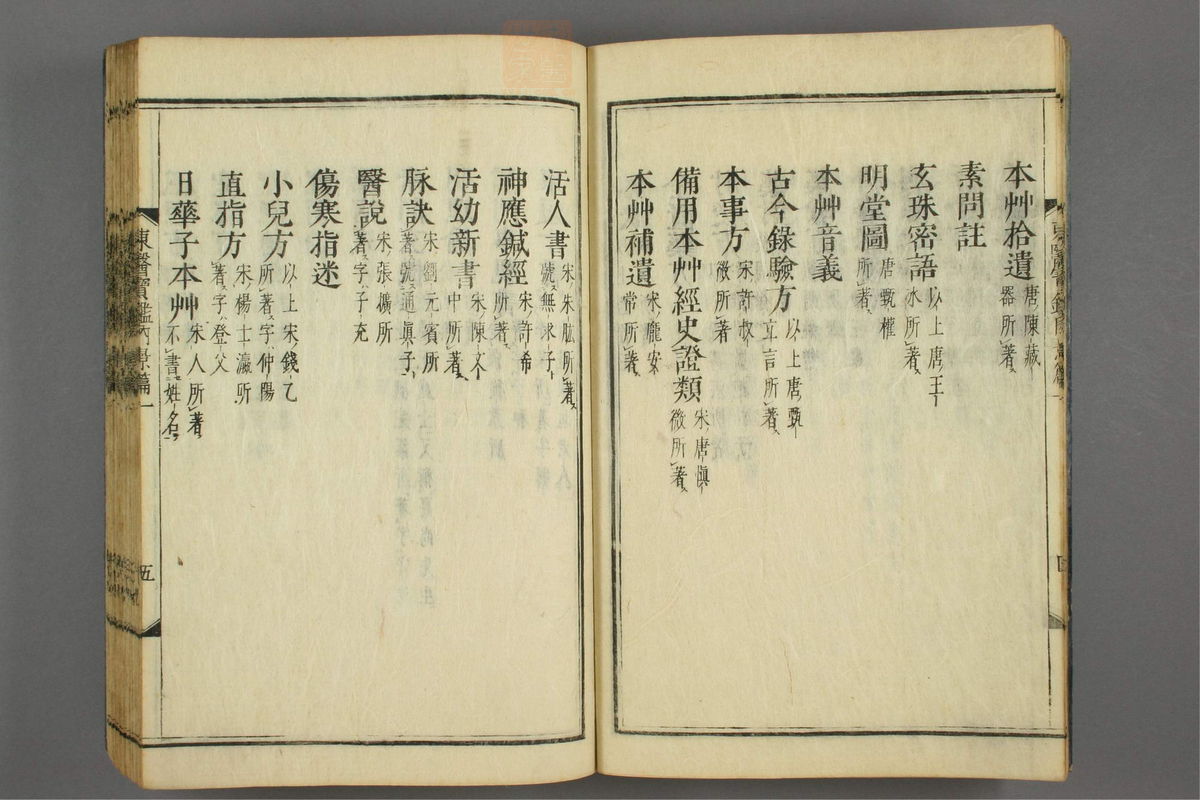 本艸拾遺 唐陳藏器所著
素問註
玄珠密語 以上唐王冰所著
明堂圖 唐甄權所著
本艸音義
古今錄驗方 以上唐甄立言所著
本事方 宋許叔微所著
備用本艸經史證類 宋唐慎微所著
本艸補遺 宋龐安常所著
活人書 宋朱肱所著號無求子
神應鍼經 宋許希所著
活幼新書 宋陳文中所著
脉訣 宋劉元賓所著號通眞子
醫說 宋張擴所著字子充
傷寒指迷
小兒方 以上宋錢乙所著字仲陽
直指方 宋楊士瀛所著字登父
日華子本艸 宋人所著不書姓名
東醫寶鑑內景篇一
五